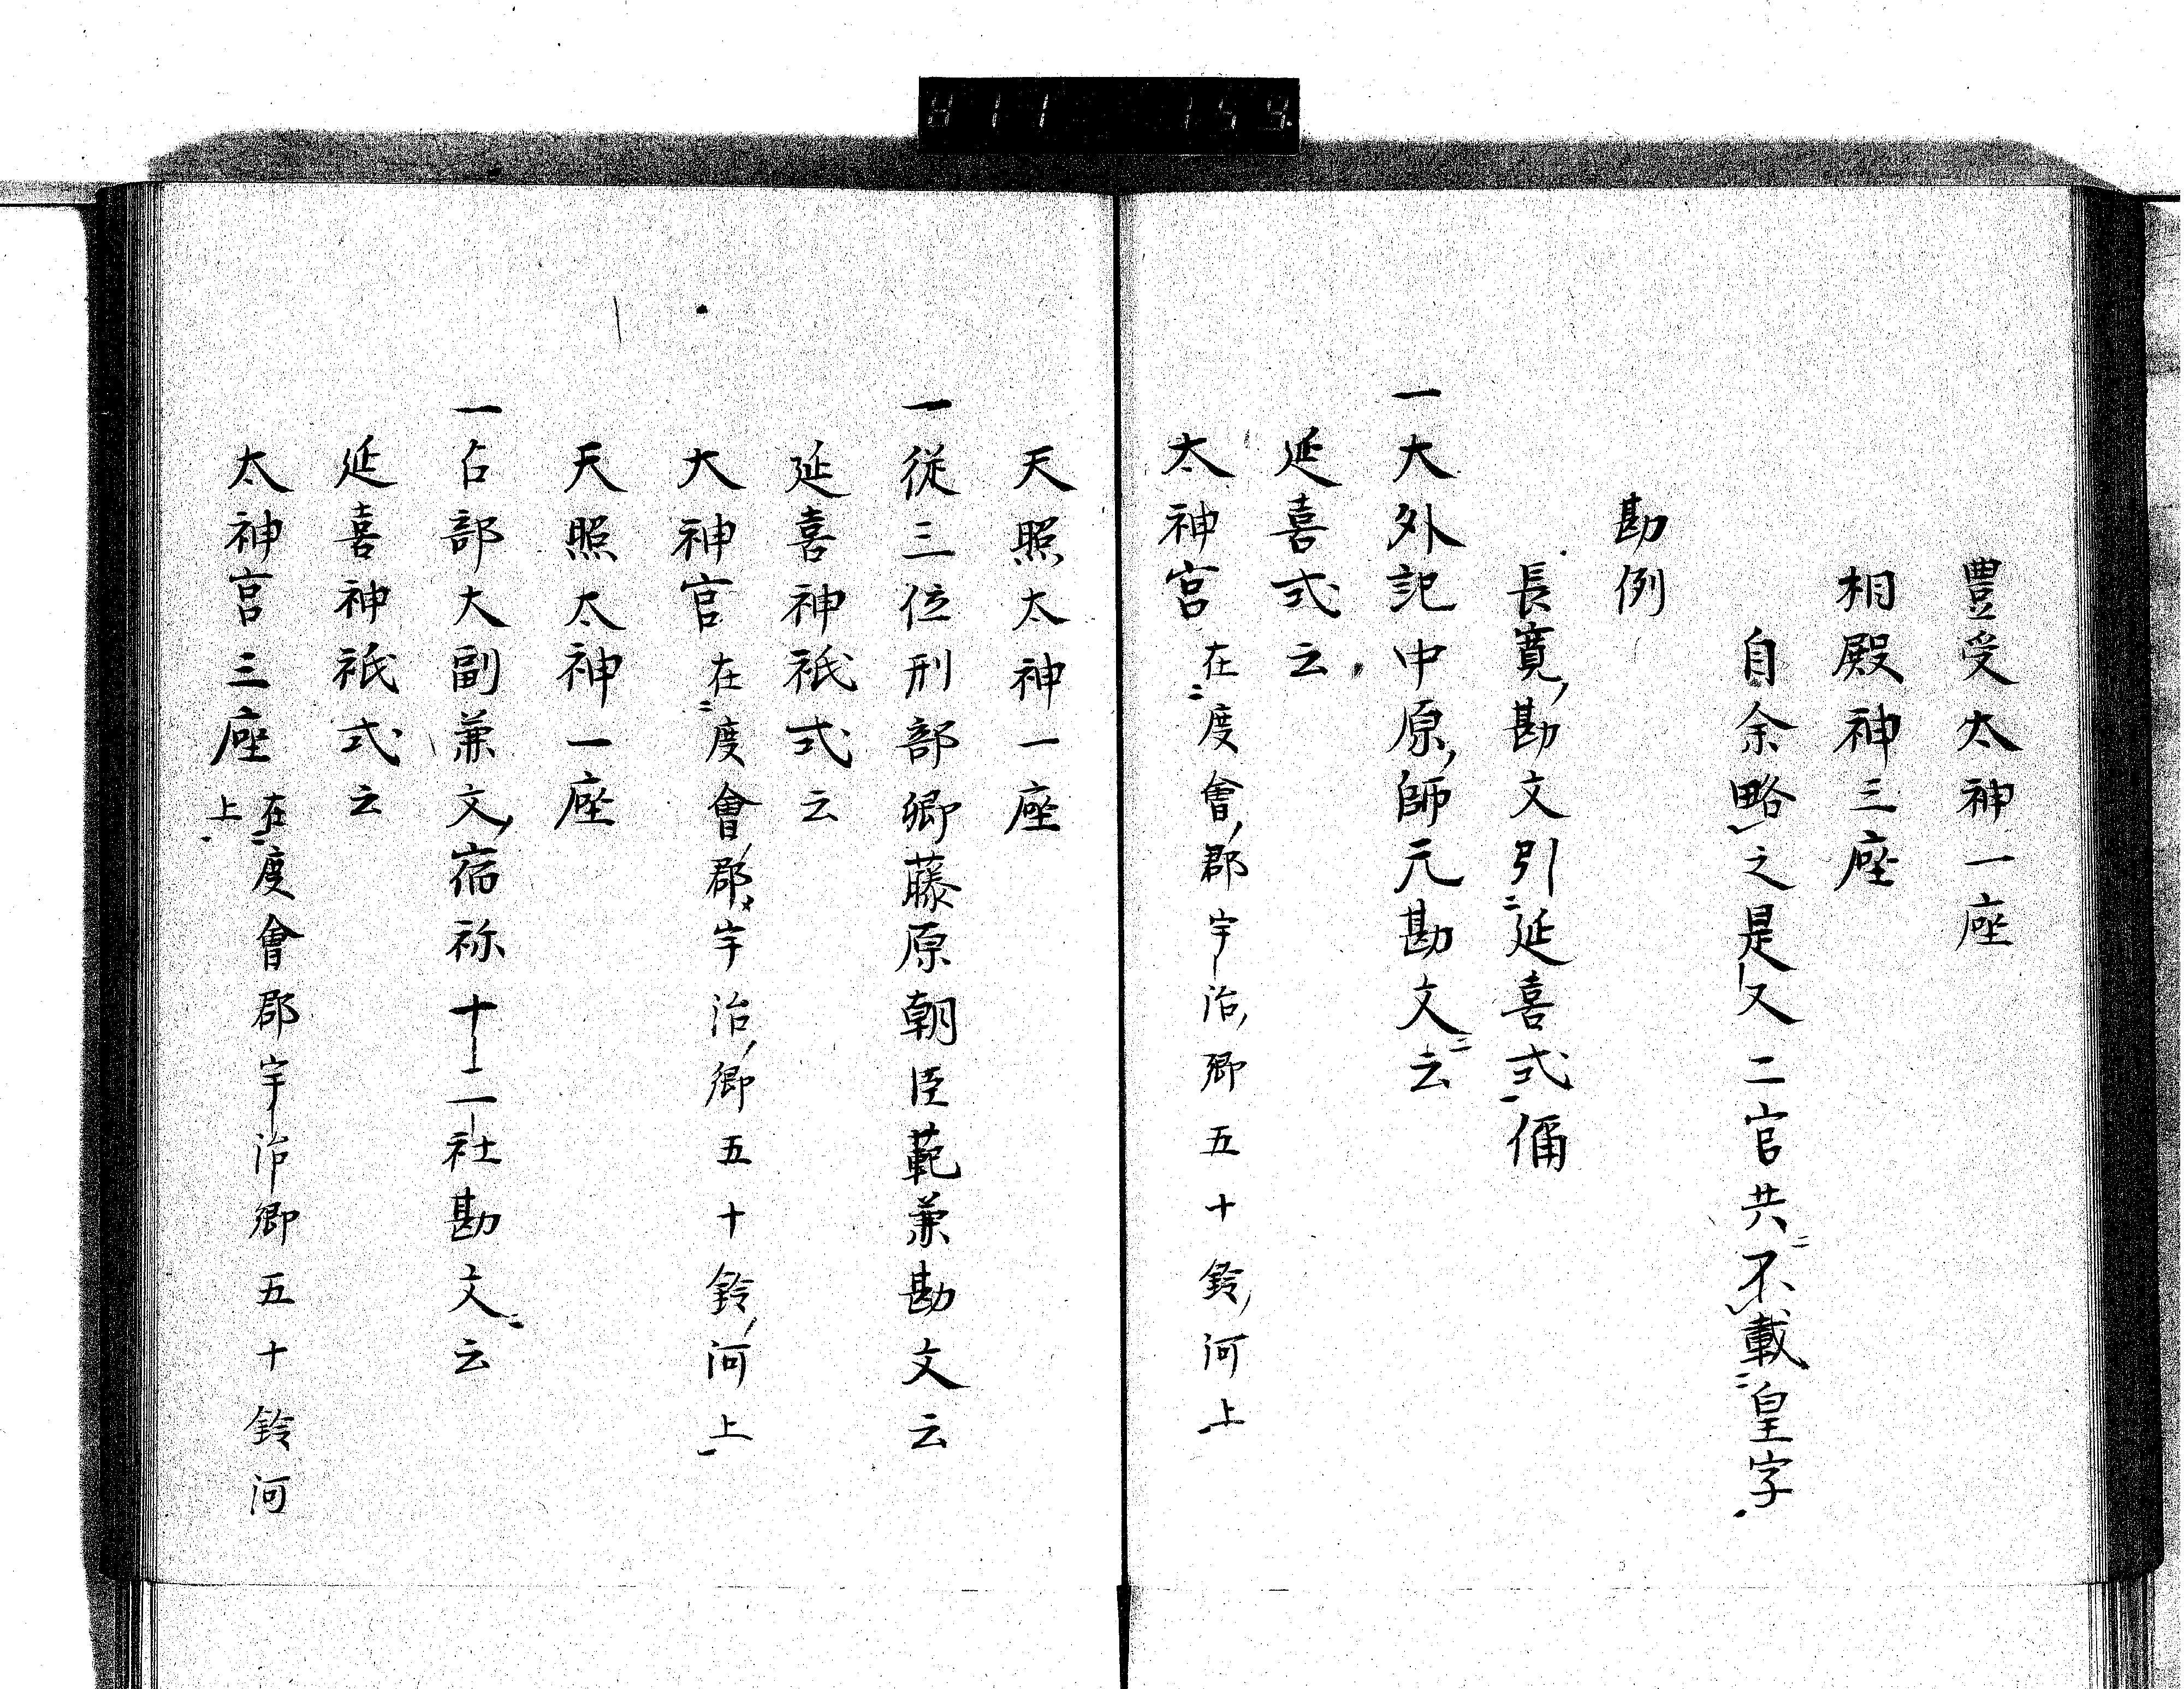 豊受太神一座
相殿神三座
自余略之是又二官共ニ不載ニ皇字
勘例
長寛ノ勘文引ニ延喜式一偁
一大外記中原ノ師元勘文ニ云
延喜式云
太神宮在ニ度會ノ郡宇治ノ郷五十鈴ノ河上一
天照太神一座
一従三位刑部卿藤原朝臣範兼勘文云
延喜神祇式云
大神官在ニ度會ノ郡宇治ノ郷五十鈴ノ河上一
天照太神一座
一占部大副兼文ノ宿祢十二社勘文ニ云
延喜神祇式云
太神宮三座在ニ度會郡宇治郷五十鈴河
上一